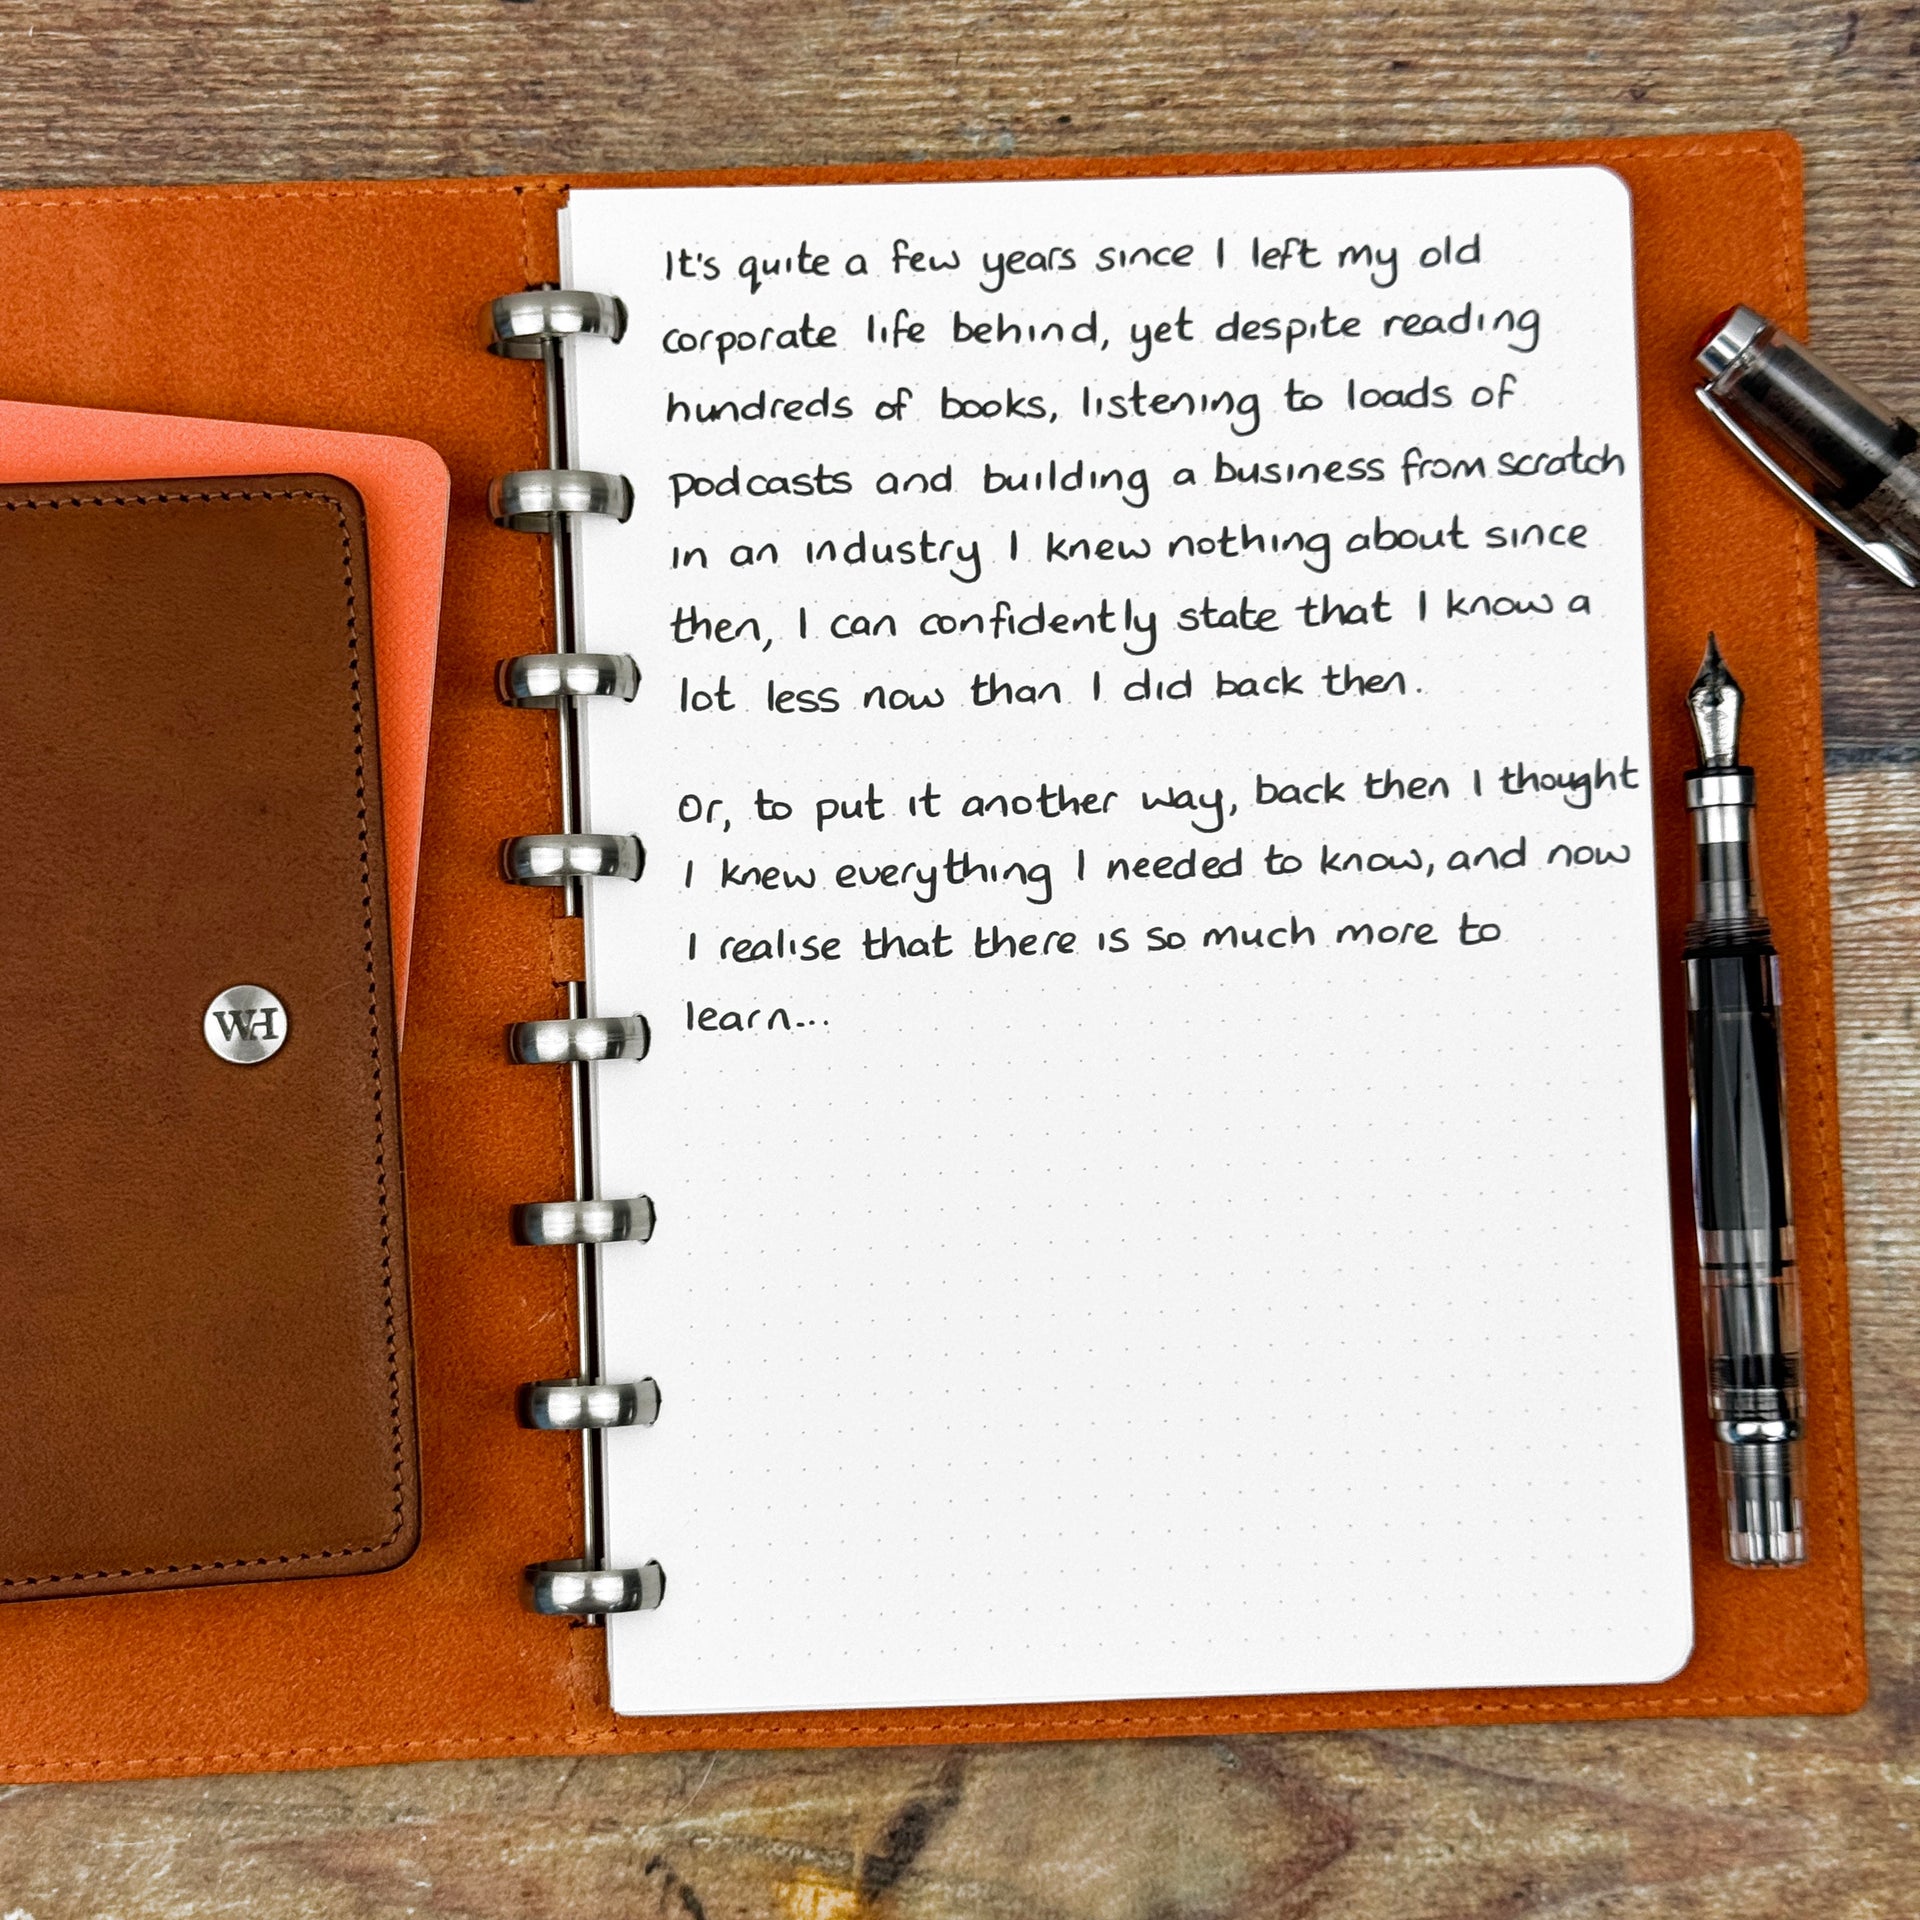 It's quite a few years since I left my old
corporate life behind, yet despite reading
hundreds of books, listening to loads of
podcasts and building a business from scratch
in an industry I knew nothing about since
then, I can confidently state that I know a
lot less now than I did back then.
Or, to put it another way, back then I thought
I knew everything I needed to know, and now
I realise that there is so much more to
learn...
WH